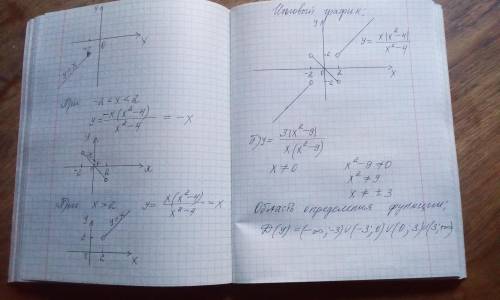 y
0
-2
x
y=x
При -2<x<2
y = -x(x²-4) / x²-4 = -x
y
-2
2
x
При x>2 y = x(x²-4) / x²-4 = x
y
y=x
2
0
2
x
Итоговый график:
y
y = x|x²-4| / x²-4
2
-2
2
-2
x
Б) y = 3|x²-9| / x(x²-9)
x≠0 x²-9≠0
x²≠9
x≠±3
Область определения функции:
D(y)=(-∞;-3)∪(-3;0)∪(0;3)∪(3;∞)